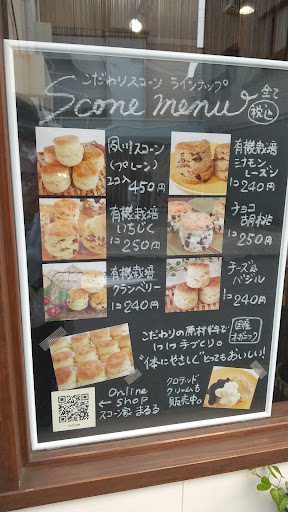 こだわりスコーン ラインナップ
Scone menu 全て税込
夙川スコーン
(プレーン)
2コ入 450円
有機栽培
シナモン
レーズン
1コ 240円
有機栽培
いちじく
1コ 250円
チョコ
胡桃
1コ 250円
有機栽培
クランベリー
1コ 240円
チーズ&
バジル
1コ 240円
こだわりの原材料で
1つ1つ手づくり。
国産
オーガニック
"体にやさしくとってもおいしい!
Online
shop
スコーン家 まるる
クロテッド
クリームも
販売中。